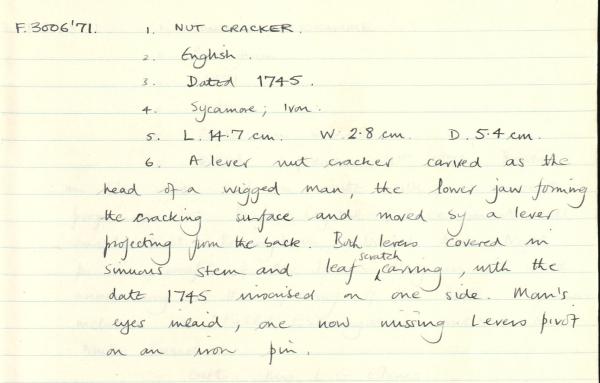 F.3006'71. 1. NUT CRACKER.
2. English.
3. Dated 1745.
4. Sycamore; Iron.
5. L. 14.7 cm. W. 2.8 cm. D. 5.4 cm.
6. A lever nut cracker carved as the
head of a wigged man, the lower jaw forming
the cracking surface and moved by a lever
projecting from the back. Both levers covered in
sinuous stem and leaf scratch carving, with the
date 1745 incised on one side. Man's
eyes inlaid, one now missing Levers pivot
on an iron pin.